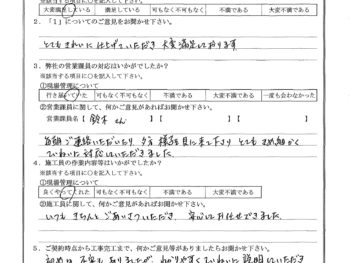 ※該当する項目に○を記入して下さい。
大変満足している 満足している 可もなく不可もなく 不満である 大変不満である
2．「1」についてのご意見をお聞かせ下さい。
とても きれいに 仕上げていただき 大変満足しております
3．弊社の営業課員の対応はいかがでしたか？
※該当する項目に○を記入して下さい。
①現場管理について
行き届いていた 可もなく不可もなく 不満である 大変不満である 一度も会わなかった
②営業課員に関して、何かご意見があればお聞かせ下さい。
営業課員名【 鈴木 さん 】【 】【 】
毎朝 ご連絡いただいたり、夕方 様子を見に来て下さり とても きめ細かく
ていねいに 対応していただきました。
4．施工員の作業内容等はいかがでしたか？
※該当する項目に○を記入して下さい。
①現場管理について
良くやってくれた 可もなく不可もなく 不満である 大変不満である
②施工員に関して、何かご意見があればお聞かせ下さい。
いつも きちんと ごあいさついただき、安心してお任せできました。
5．ご契約時点から工事完工まで、何かご意見等がありましたらお聞かせ下さい。
初めは 不安も ありましたが、わかりやすく ていねいに 説明していただき